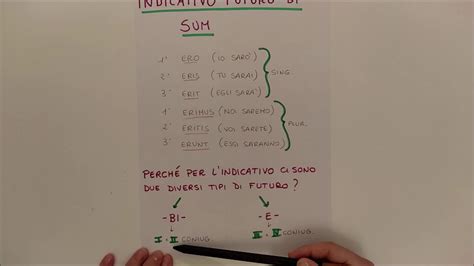 INDICATIVO FUTURO DI
SUM
1° ERO (IO SARO')
2° ERIS (TU SARAI) SING.
3° ERIT (EGLI SARA')
1° ERIMUS (NOI SAREMO)
2° ERITIS (VOI SARETE) PLUR.
3° ERUNT (ESSI SARANNO)
PERCHÉ PER L'INDICATIVO CI SONO
DUE DIVERSI TIPI DI FUTURO?
-BI- -E-
I - II CONIUG. III - IV CONIUG.